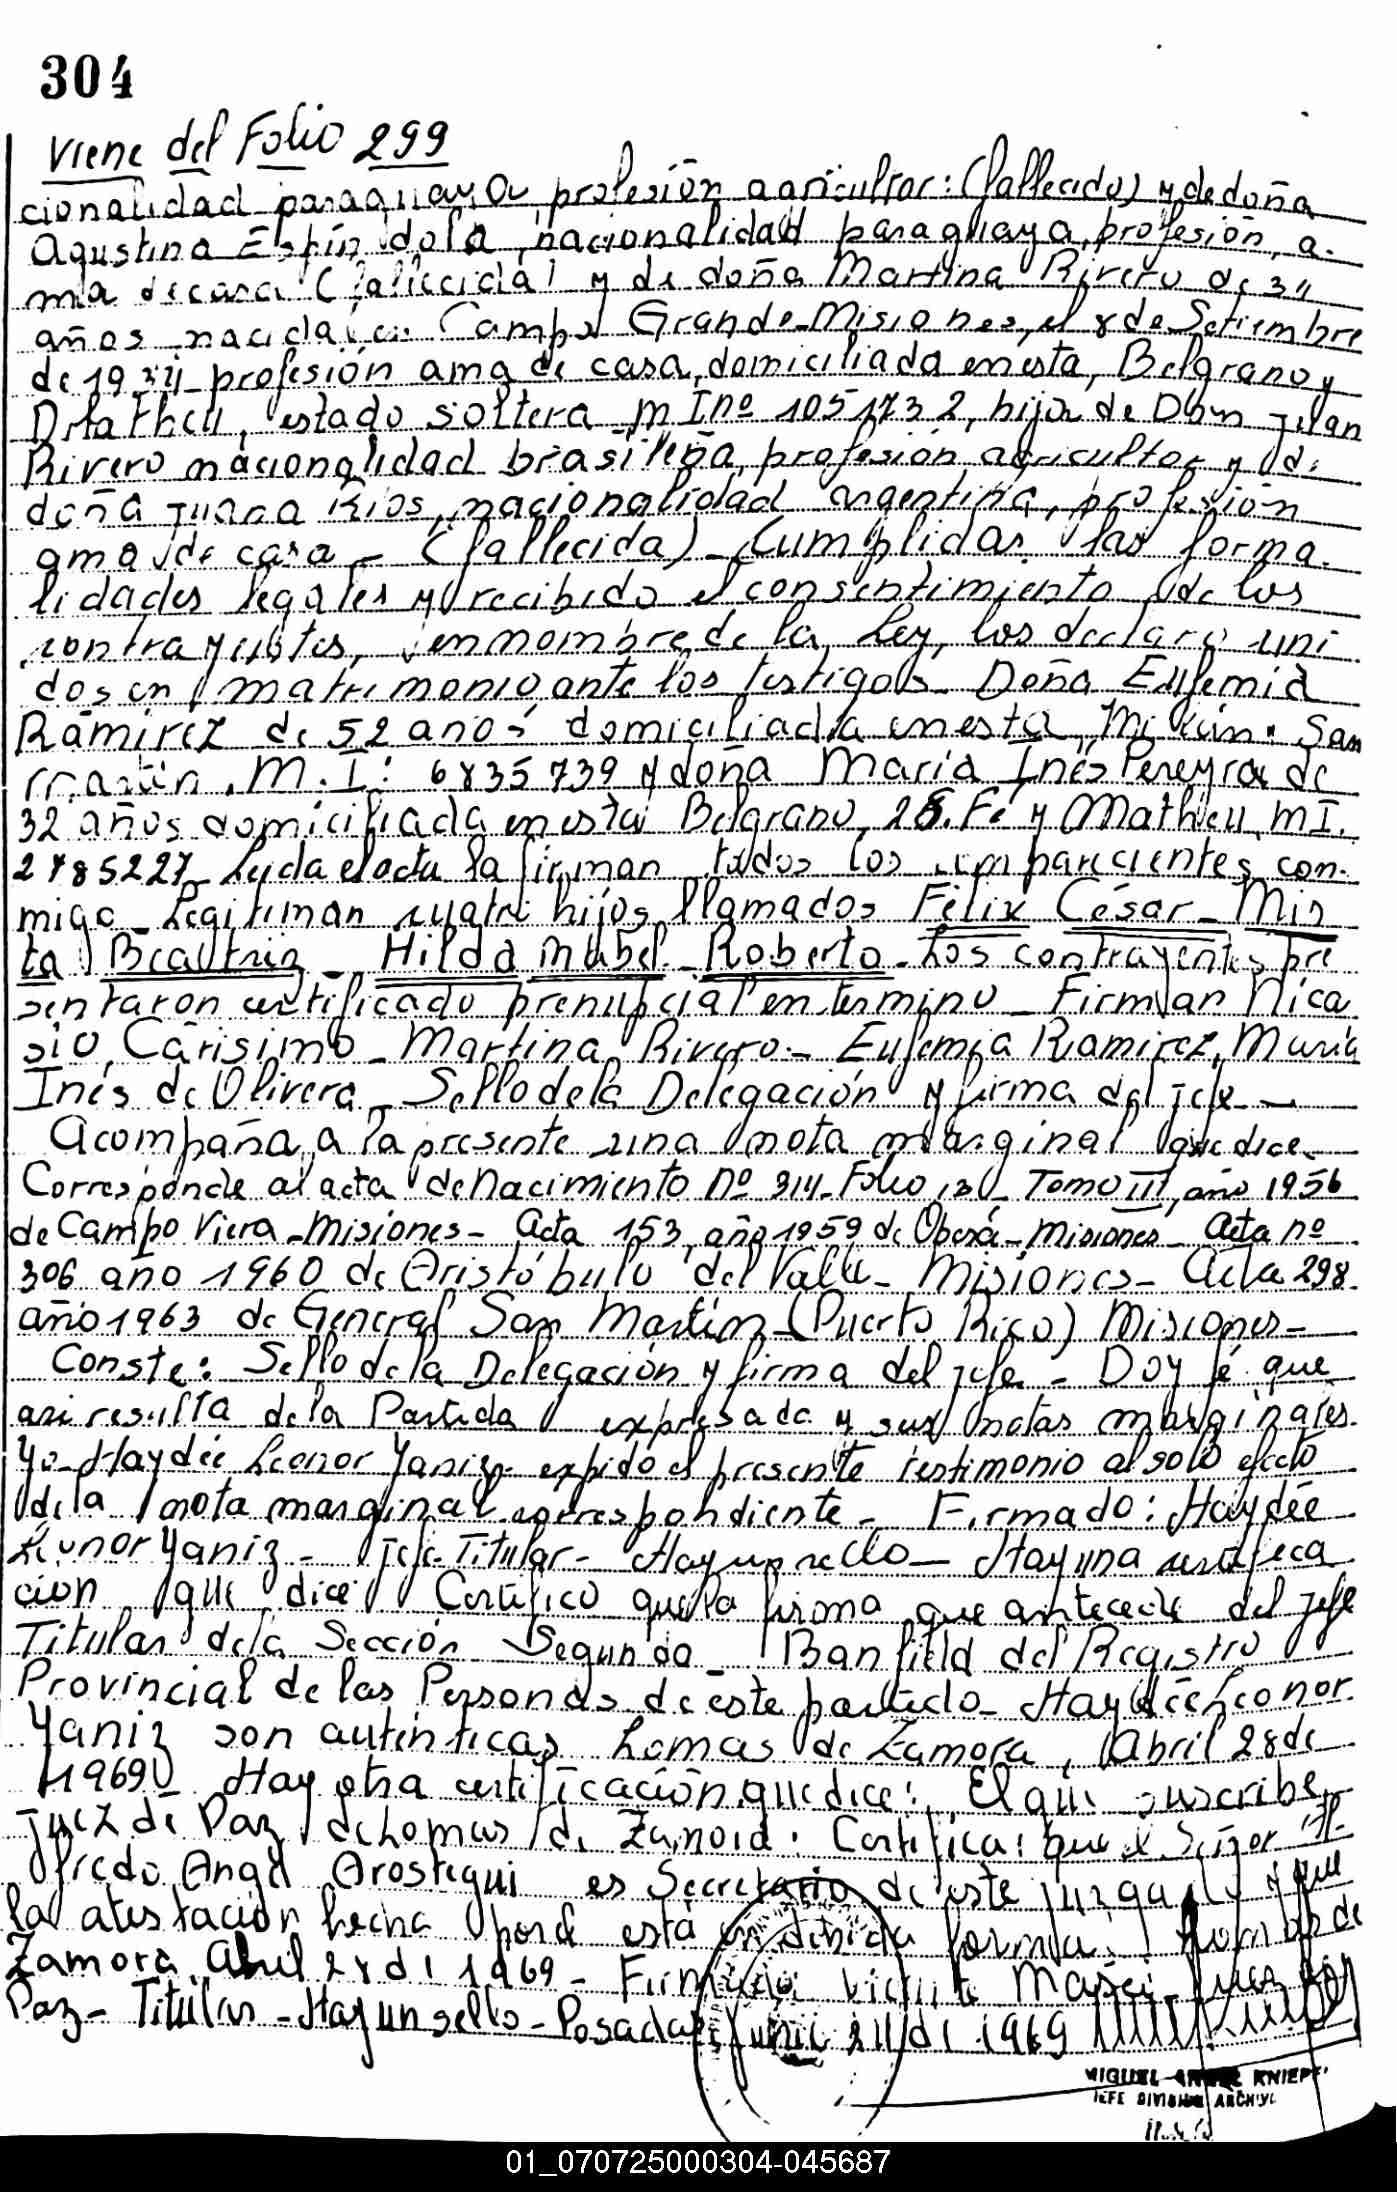 304
Viene del Folio 299
cionalidad paraguaya, profesión agricultor: (fallecido) y de doña
Agustina Espíndola, nacionalidad paraguaya, profesión, a-
ma de casa (fallecida) y de doña Martina Rivero de 34
años nacida en Campo Grande-Misiones, el 8 de Setiembre
de 1934 profesión ama de casa, domiciliada en esta, Belgrano y
Matheu, estado soltera M I nº 1051732, hija de Don Juan
Rivero nacionalidad brasileña, profesión agricultor y de
doña Juana Rios, nacionalidad argentina, profesión
ama de casa - (fallecida) - Cumplidas las forma-
lidades legales y recibido el consentimiento de los
contrayentes, en nombre de la Ley, los declaro uni
dos en matrimonio ante los testigos - Doña Eufemia
Ramírez de 52 años domiciliada en esta, San
Martín. M. I: 6835739 y doña María Inés Pereyra de
32 años domiciliada en esta Belgrano, Fé y Matheu, M I.
2785227 - Leida el acta la firman todos los comparecientes con-
migo - Legitiman cuatro hijos llamados Félix César - Mir
ta Beatriz - Hilda Mabel - Roberto - Los contrayentes pre
sentaron certificado prenupcial en termino - Firman Nica
sio Carisimo - Martina Rivero - Eufemia Ramirez, María
Inés de Olivera - Sello de la Delegación y firma del jefe -
Acompaña a la presente una nota marginal que dice -
Corresponde al acta de Nacimiento nº 314 - Folio - Tomo III, año 1956
de Campo Viera - Misiones - Acta 153, año 1959 de Oberá - Misiones - Acta nº
306 año 1960 de Aristóbulo del Valle - Misiones - Acta 298
año 1963 de General San Martín - (Puerto Rico) Misiones -
Conste: Sello de la Delegación y firma del jefe - Doy fé que
asi resulta de la Partida expresada y sus notas marginales.
Yo - Haydée Leonor Yaniz - expido el presente testimonio al solo efecto
de la nota marginal correspondiente - Firmado: Haydée
Leonor Yaniz - Jefe Titular - Hay un sello - Hay una certifica
cion que dice Certifico que la firma que antecede del Jefe
Titular de la Sección Segunda - Banfield del Registro
Provincial de las Personas de este partido - Haydée Leonor
Yaniz son auténticas Lomas de Zamora, Abril 28 de
1969 Hay otra certificación que dice: El que suscribe,
Juez de Paz de Lomas de Zamora. Certifica: que el Señor Al-
fredo Angel Arostegui es Secretario de este Juzgado y que
la atestación hecha por él está en debida forma. Lomas de
Zamora Abril 28 de 1969 - Firmado: Vicente Juez de
Paz - Titular - Hay un sello - Posadas, Junio 24 de 1969
MIGUEL ANGEL KNIEPF
JEFE DIVISION ARCHIVO
01_070725000304-045687